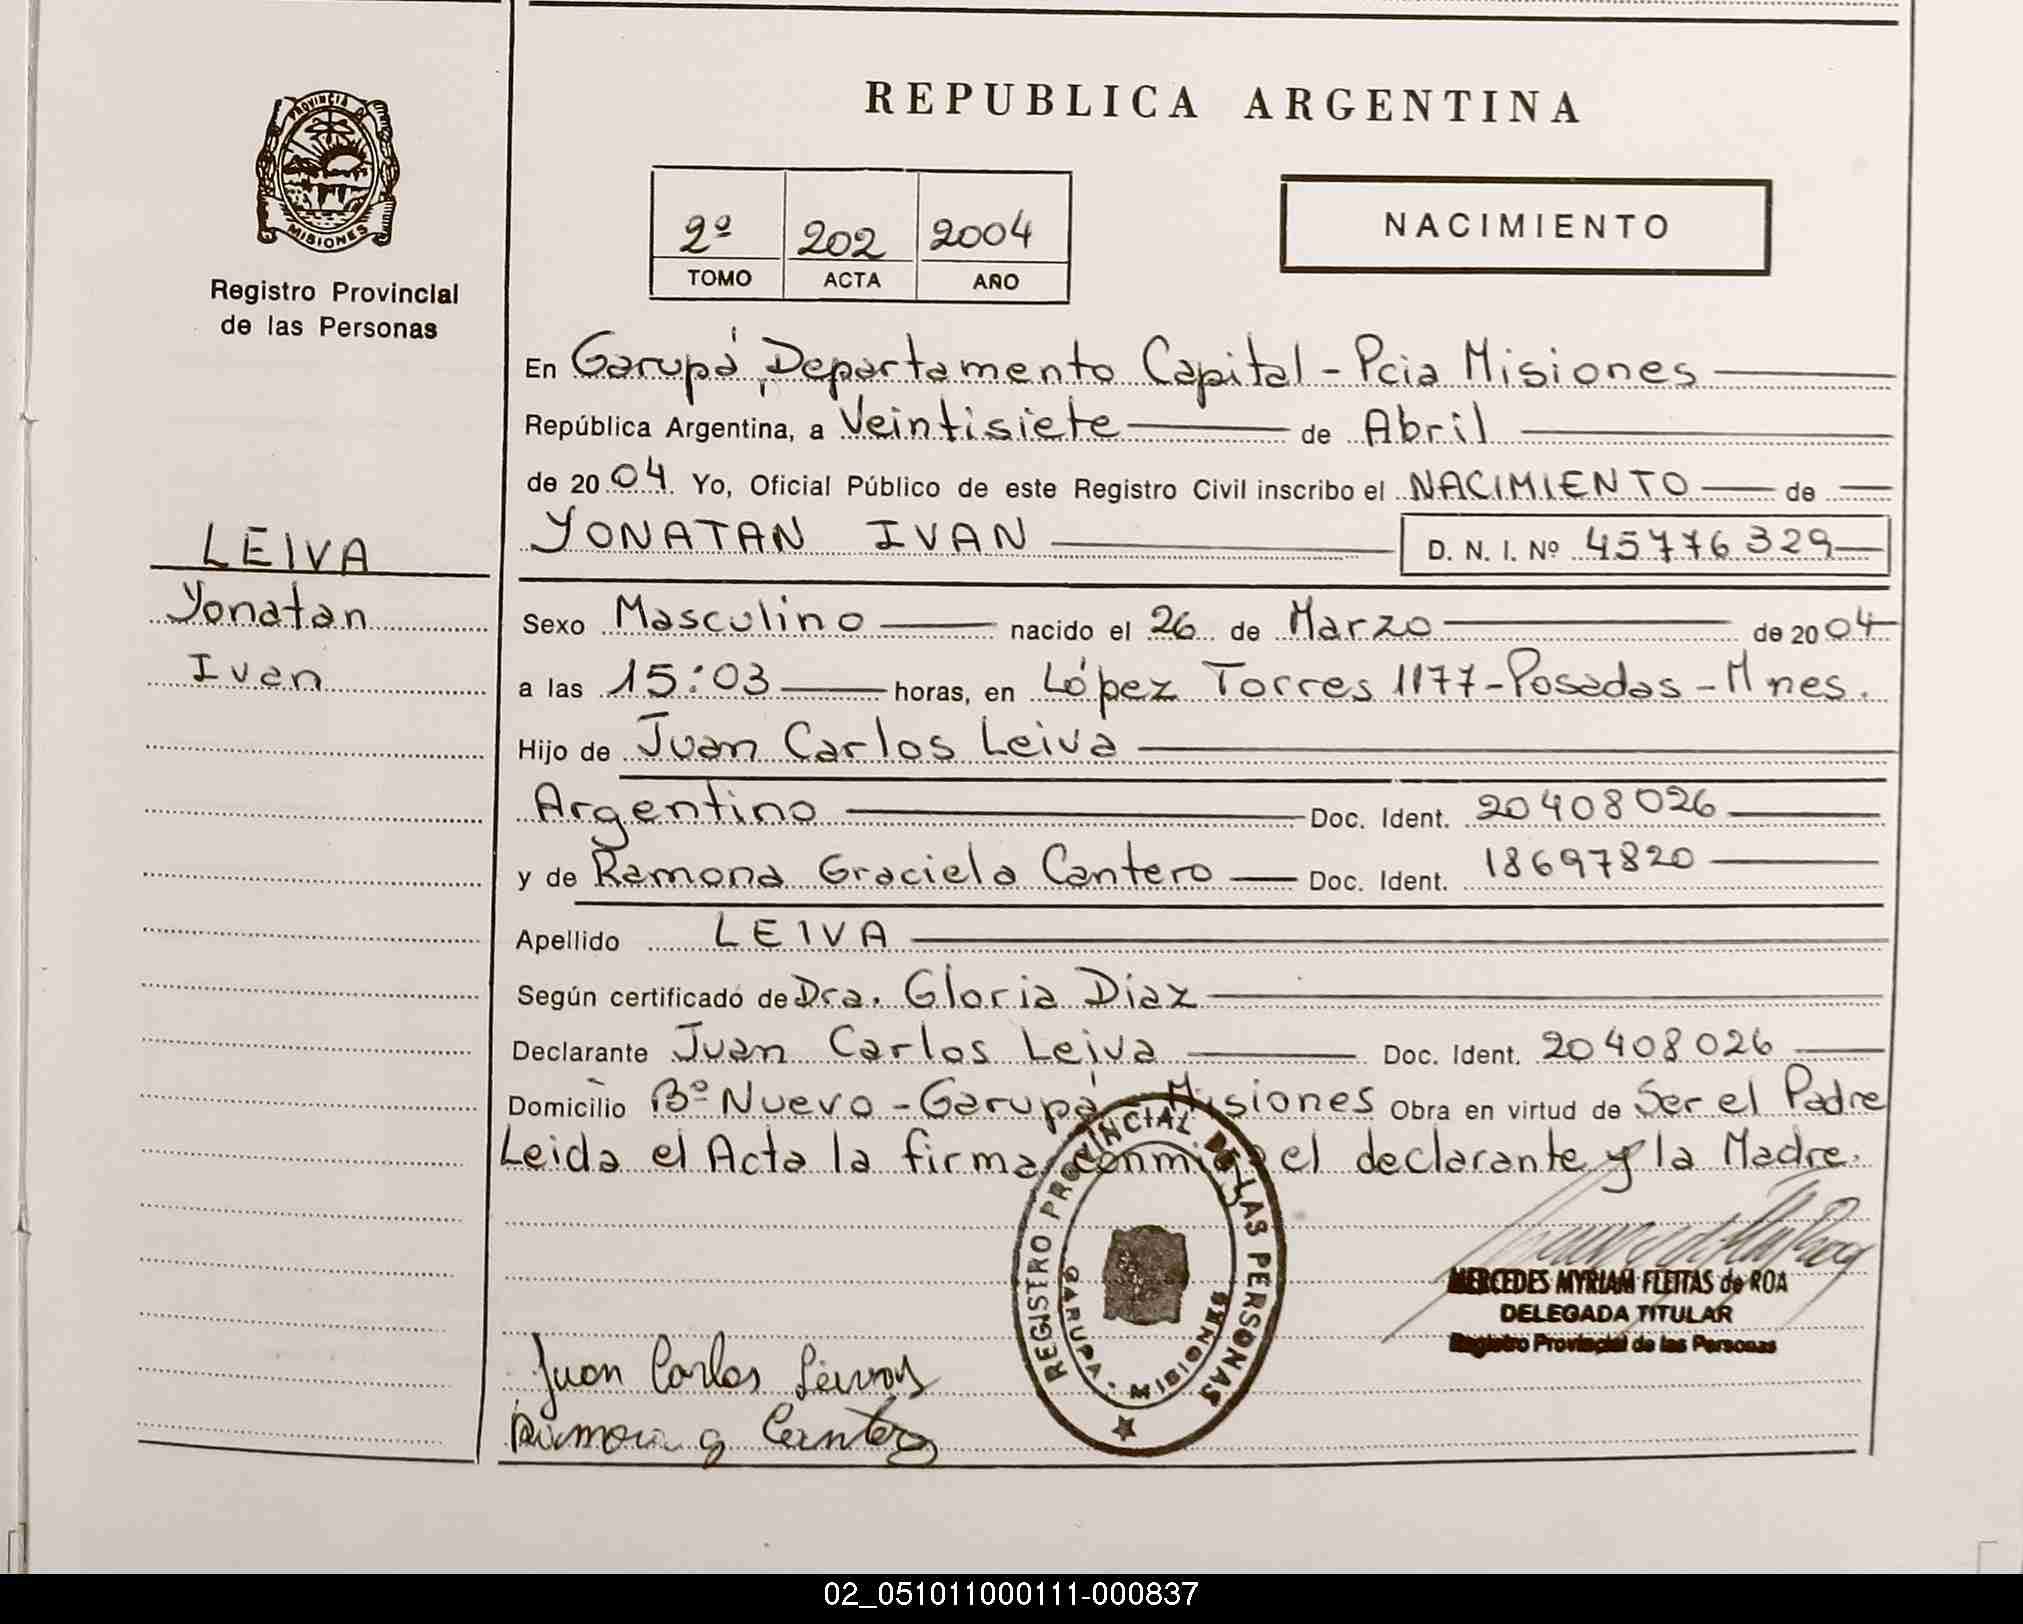 REPUBLICA ARGENTINA
PROVINCIA DE
MISIONES
Registro Provincial
de las Personas
2º 202 2004
TOMO ACTA AÑO
NACIMIENTO
En Garupá, Departamento Capital - Pcia Misiones
República Argentina, a Veintisiete de Abril
de 2004 Yo, Oficial Público de este Registro Civil inscribo el NACIMIENTO de
YONATAN IVAN D. N. I. Nº 45776329
LEIVA
Yonatan
Ivan
Sexo Masculino nacido el 26 de Marzo de 2004
a las 15:03 horas, en López Torres 1177-Posadas-Mnes.
Hijo de Juan Carlos Leiva
Argentino Doc. Ident. 20408026
y de Ramona Graciela Cantero Doc. Ident. 18697820
Apellido LEIVA
Según certificado de Dra. Gloria Diaz
Declarante Juan Carlos Leiva Doc. Ident. 20408026
Domicilio Bº Nuevo - Garupá Misiones Obra en virtud de Ser el Padre
Leida el Acta la firma conmigo el declarante y la Madre.
REGISTRO PROVINCIAL DE LAS PERSONAS
GARUPA - MISIONES
MERCEDES MYRIAM FLEITAS de ROA
DELEGADA TITULAR
Registro Provincial de las Personas
Juan Carlos Leiva
Ramona G Cantero
02_051011000111-000837